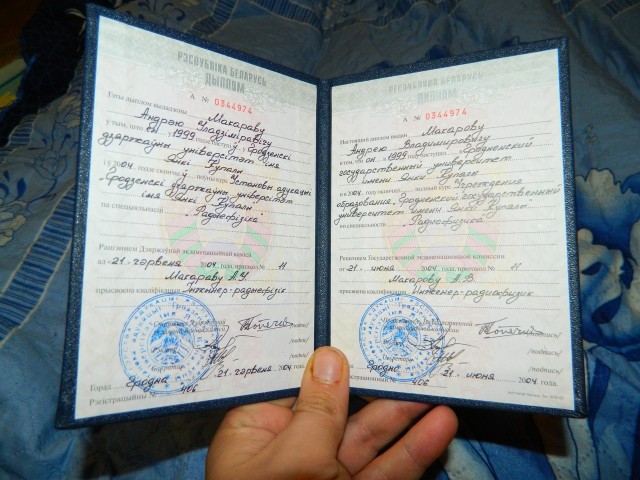 РЭСПУБЛІКА БЕЛАРУСЬ
ДЫПЛОМ
А № 0344974
Гэты дыплом выдадзены Макараву
Андрэю Уладзіміравічу
у тым, што ён у 1999 годзе паступіў у Гродзенскі
дзяржаўны універсітэт імя
Янкі Купалы
і ў 2004 годзе скончыў поўны курс Установы адукацыі
"Гродзенскі дзяржаўны універсітэт
імя Янкі Купалы"
па спецыяльнасці "Радыёфізіка"
Рашэннем Дзяржаўнай экзаменацыйнай камісіі
ад 21 чэрвеня 2004 года, пратакол № 11
Макараву А.У.
прысвоена кваліфікацыя Інжынер-радыёфізік
/подпіс/
/подпіс/
/подпіс/
Горад Гродна 21 чэрвеня 2004 г.
Рэгістрацыйны № 406
РЕСПУБЛИКА БЕЛАРУСЬ
ДИПЛОМ
А № 0344974
Настоящий диплом выдан Макарову
Андрею Владимировичу
в том, что он в 1999 году поступил в Гродненский
государственный университет
имени Янки Купалы
и в 2004 году окончил полный курс Учреждения
образования "Гродненский государственный
университет имени Янки Купалы"
по специальности "Радиофизика"
Решением Государственной экзаменационной комиссии
от 21 июня 2004 года, протокол № 11
Макарову А.В.
присвоена квалификация Инженер-радиофизик
/подпись/
/подпись/
/подпись/
Гродно 21 июня 2004 г.
Регистрационный № 406